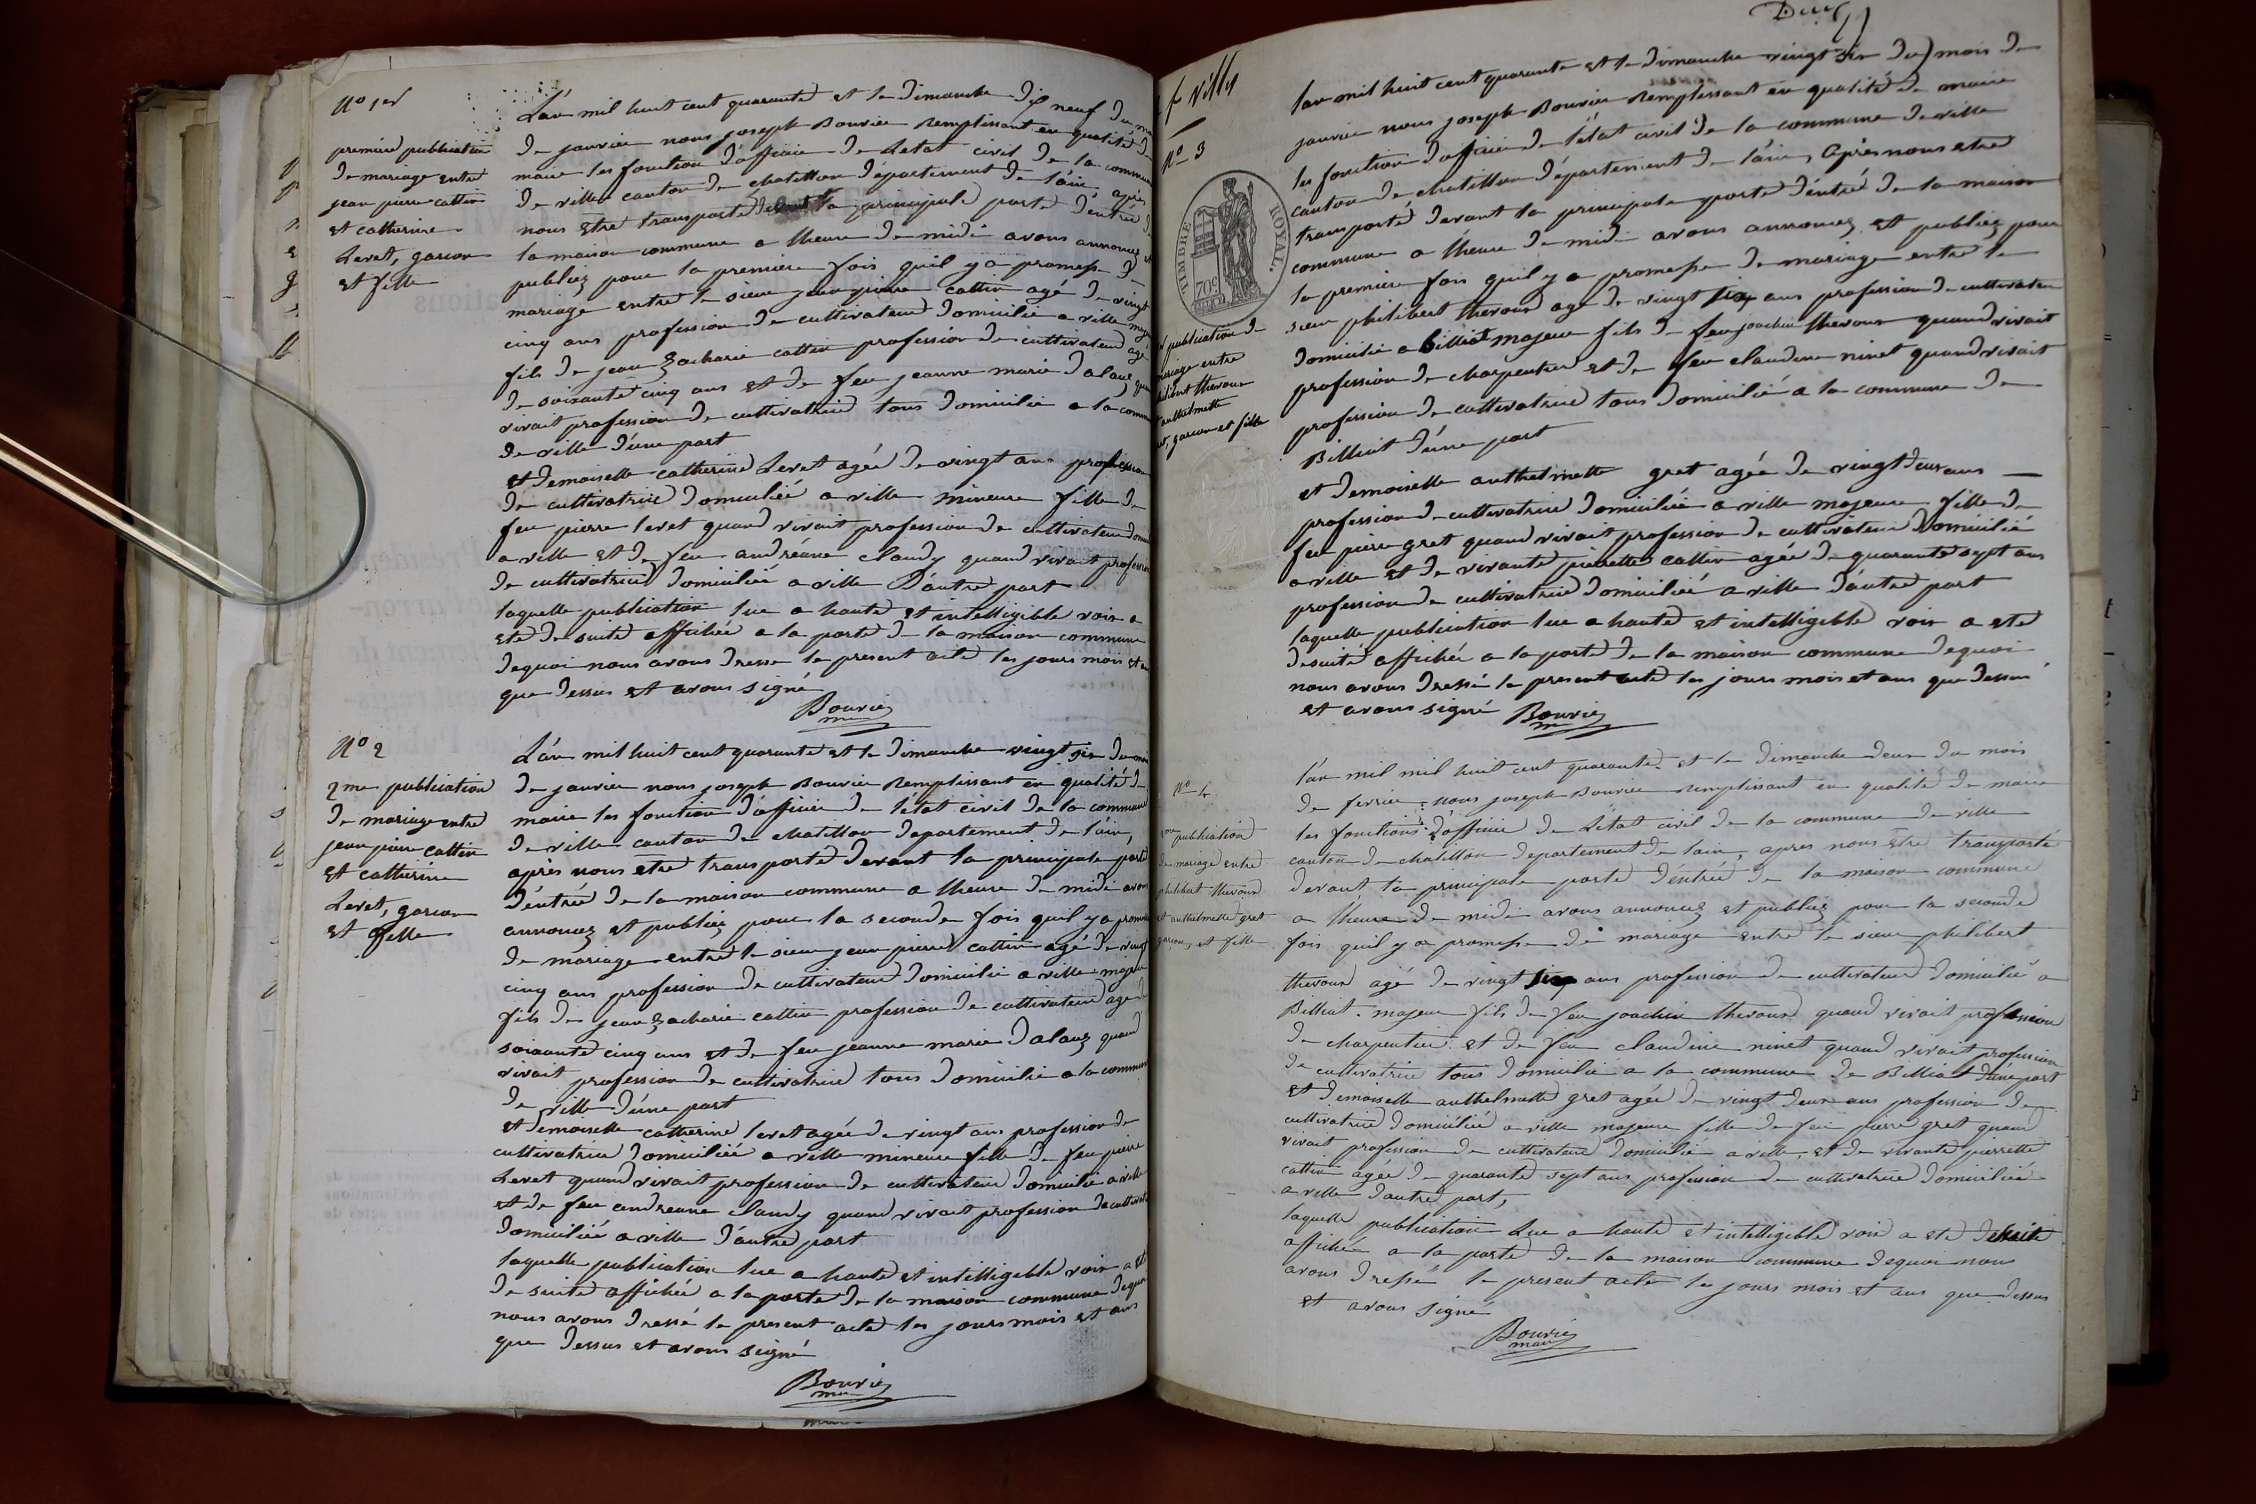 No 1er
premiere publication
de mariage entre
jean pierre cattin
et catherine
Levet, garcon
et fille
L'an mil huit cent quarante et le dimanche dix neuf du
de janvier nous joseph Bouvier Remplissant en qualité de
maire les fonction d'officier de Letat civil de la commune
de ville canton de chatillon département de l'ain, apres
nous etre transporté devant la principale porte d'entrée de
la maison commune a lheure de midi avons annoncez et
publiez pour la premiere fois quil y a promesse de
mariage entre le sieur jean pierre cattin agé de vingt
cinq ans profession de cultivateur domicilié a ville majeur
fils de jean Zacharie cattin profession de cultivateur agé
de soixante cinq ans et de feu jeanne marie dalauz quand
vivait profession de cultivatrice tous domicilié a la commune
de ville d'une part
et demoiselle catherine Levet agée de vingt ans profession
de cultivatrice domiciliée a ville mineure fille de
feu pierre levet quand vivait profession de cultivateur
a ville et de feu andréane claudy quand vivait profession
de cultivatrice domiciliée a ville d'autre part
laquelle publication lue a haute et intelligible voix a
eté de suite affichée a la porte de la maison commune
dequoi nous avons dresse le present acte les jours mois et an
que dessus et avons signé
Bouvier
maire
No 2
2me publication
de mariage entre
jean pierre cattin
et catherine
Levet, garcon
et fille
L'an mil huit cent quarante et le dimanche vingt six du mois
de janvier nous joseph Bouvier Remplissant en qualité de
maire les fonction d'officier de l'état civil de la commune
de ville canton de chatillon departement de l'ain,
après nous etre transporté devant la principale porte
d'entrée de la maison commune a lheure de midi avons
annoncez et publiez pour la seconde fois quil y a promesse
de mariage entre le sieur jean pierre cattin agé de vingt
cinq ans profession de cultivateur domicilié a ville majeur
fils de jean Zacharie cattin profession de cultivateur age de
soixante cinq ans et de feu jeanne marie dalauz quand
vivait profession de cultivatrice tous domicilié a la commune
de ville d'une part
et demoiselle catherine levet agée de vingt ans profession de
cultivatrice domiciliée a ville mineure fille de feu pierre
Levet quand vivait profession de cultivateur domicilié a ville
et de feu andreane claudy quand vivait profession de cultivatrice
domiciliée a ville d'autre part
laquelle publication lue a haute et intelligible voix a eté
de suite affichée a la porte de la maison commune dequoi
nous avons dressé le present acte les jours mois et ans
que dessus et avons signé
Bouvier
maire
Deux
f ville
No 3
TIMBRE ROYAL.
70c
publication de
mariage entre
philibert thevoux
anthelmette
gret, garcon et fille
lan mil huit cent quarante et le dimanche vingt six du mois de
janvier nous joseph Bouvier Remplissant en qualité de maire
les fonction d'officier de l'état civil de la commune de ville
canton de chatillon département de l'ain, Après nous etre
transporté devant la principale porte d'entré de la maison
commune a l'heure de midi avons annoncez et publiez pour
la premiere fois quil y a promesse de mariage entre le
sieur philibert thevoux agé de vingt six ans profession de cultivateur
domicilié a billiat majeur fils de feu joachin thevoux quand vivait
profession de charpentier et de feu claudine ninet quand vivait
profession de cultivatrice tous domicilié a la commune de
Billiat d'une part
et demoiselle anthelmette gret agée de vingt deux ans
profession de cultivatrice domiciliée a ville majeure fille de
feu pierre gret quand vivait profession de cultivateur domicilié
a ville et de vivante pierrette cattin agée de quarante sept ans
profession de cultivatrice domiciliée a ville d'autre part
laquelle publication lue a haute et intelligible voix a eté
desuite affichée a la porte de la maison commune dequoi
nous avons dressé le present acte les jours mois et ans que dessus
et avons signé Bouvier
maire
No 4
publication
de mariage entre
philibert thevoux
et anthelmette gret
garcon, et fille
l'an mil mil huit cent quarante et le dimanche deux du mois
de fevrier nous joseph Bouvier Remplissant en qualité de maire
les fonctions d'officier de Létat civil de la commune de ville
canton de chatillon departement de lain, apres nous etre transporté
devant la principale porte d'entrée de la maison commune
a l'heure de midi avons annoncez et publiez pour la seconde
fois quil y a promesse de mariage entre le sieur philibert
thevoux agé de vingt six ans profession de cultivateur domicilié a
Billiat majeur fils de feu joachin thevoux quand vivait profession
de charpentier et de feu claudine ninet quand vivait profession
de cultivatrice tous domicilié a la commune de Billiat d'une part
et demoiselle anthelmette gret agée de vingt deux ans profession de
cultivatrice domiciliée a ville majeure fille de feu pierre gret quand
vivait profession de cultivateur domicilié a ville, et de vivante pierrette
cattin agée de quarante sept ans profession de cultivatrice domiciliée
a ville d'autre part,
laquelle publication Lue a haute et intelligible voix a eté desuite
affichée a la porte de la maison commune dequoi nous
avons dressé le present acte les jours mois et ans que dessus
et avons signé
Bouvier
maire